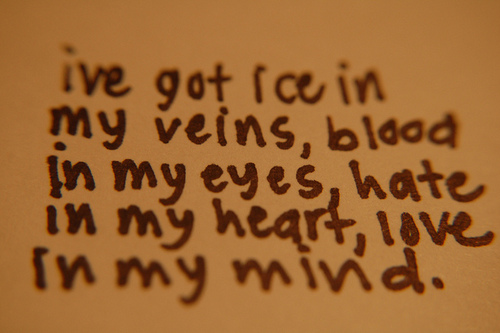 ive got ice in
my veins, blood
in my eyes, hate
in my heart, love
in my mind.